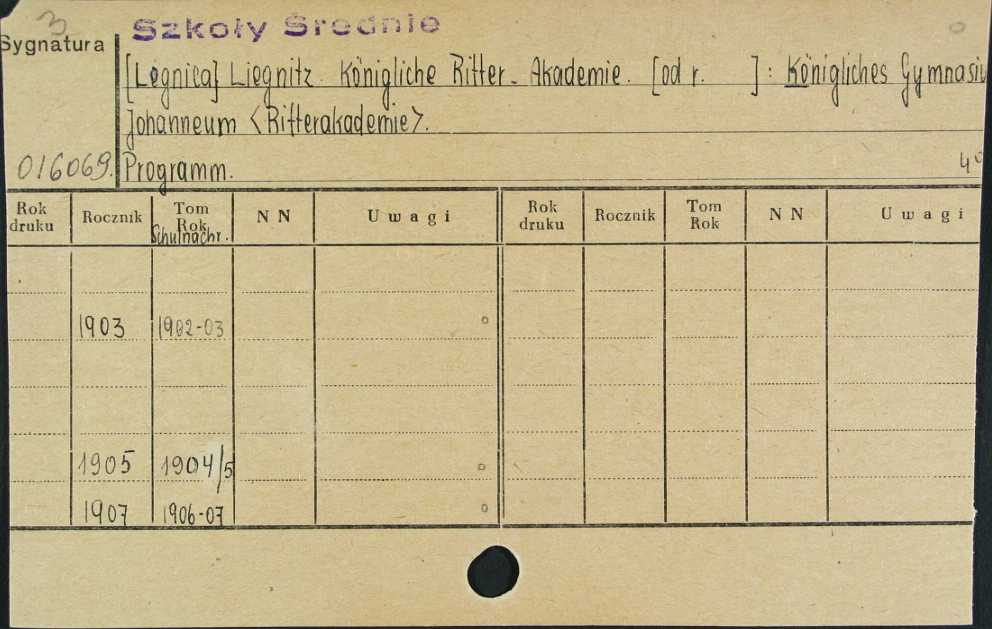 3
Szkoły Średnie
Sygnatura
[Legnica] Liegnitz. Königliche Ritter-Akademie. [od r. ]: Königliches Gymnasiu
Johanneum <Ritterakademie>.
016069. Programm. 4°
Rok druku Rocznik Tom Rok NN Uwagi Rok druku Rocznik Tom Rok NN Uwagi
Schulnachr.
1903 1902-03
1905 1904/5
1907 1906-07